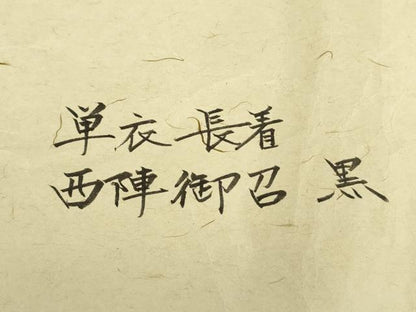 単衣 長着
西陣御召 黒